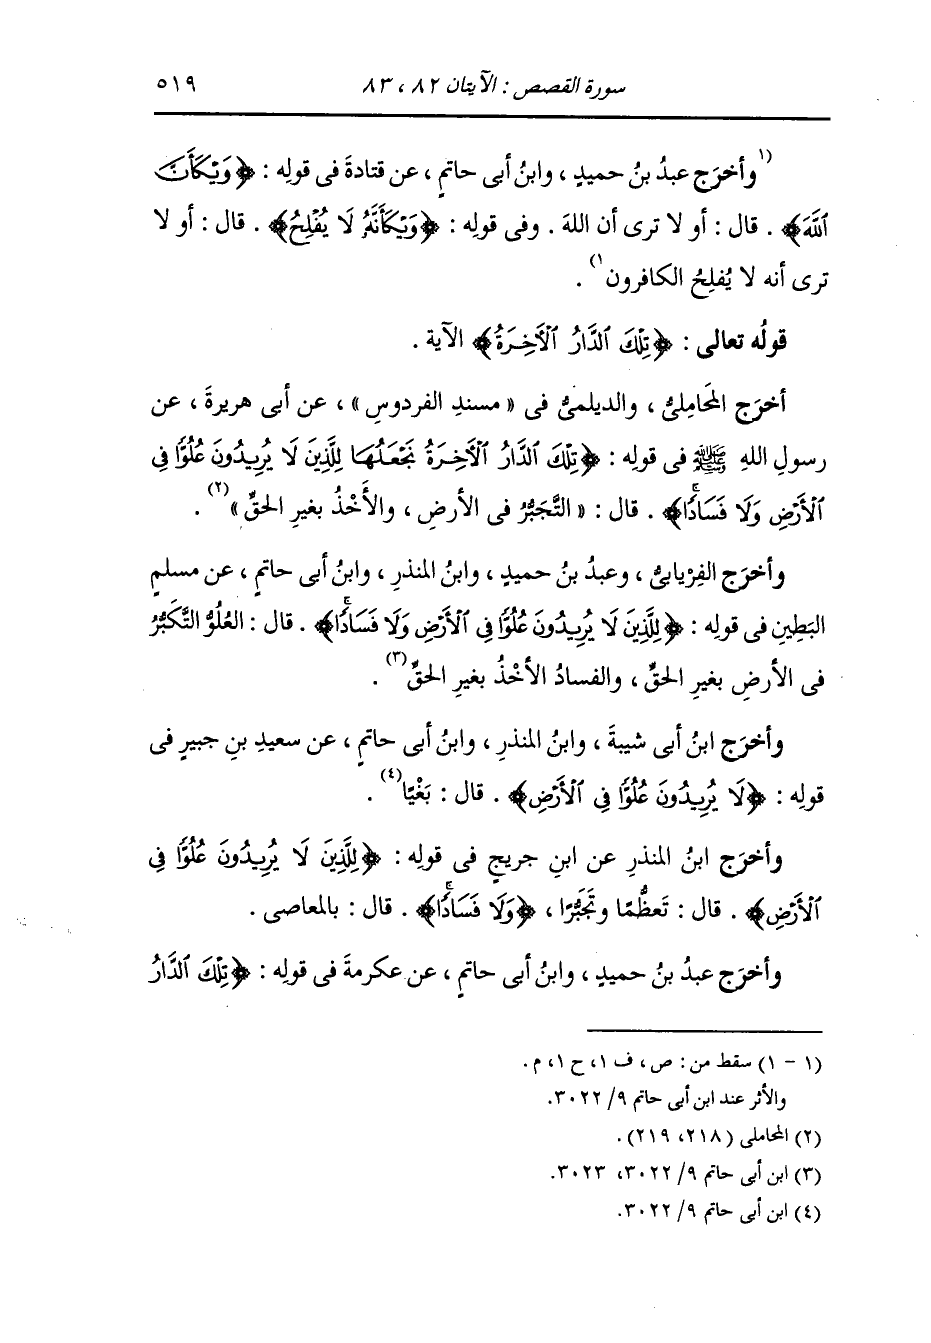 سورة القصص : الآيتان ٨٢ ، ٨٣ ٥١٩
(١ وأخرَج عبدُ بنُ حميدٍ ، وابنُ أبى حاتمٍ ، عن قتادةَ فى قولِه : ﴿وَيْكَأَنَّ
ٱللَّهَ﴾ . قال : أو لا ترى أن اللهَ . وفى قولِه : ﴿وَيْكَأَنَّهُۥ لَا يُفْلِحُ﴾ . قال : أو لا
ترى أنه لا يُفلِحُ الكافرون ١) .
قولُه تعالى : ﴿تِلْكَ ٱلدَّارُ ٱلْأَخِرَةُ﴾ الآية .
أخرَج المَحامِلىُّ ، والديلمىُّ فى « مسندِ الفردوسِ » ، عن أبى هريرةَ ، عن
رسولِ اللهِ ﷺ فى قولِه : ﴿تِلْكَ ٱلدَّارُ ٱلْأَخِرَةُ نَجْعَلُهَا لِلَّذِينَ لَا يُرِيدُونَ عُلُوًّا فِى
ٱلْأَرْضِ وَلَا فَسَادًاۚ﴾ . قال : « التَّجَبُّرُ فى الأرضِ ، والأَخْذُ بغيرِ الحقِّ » (٢) .
وأخرَج الفِرْيابىُّ ، وعبدُ بنُ حميدٍ ، وابنُ المنذرِ ، وابنُ أبى حاتمٍ ، عن مسلمٍ
البَطِينِ فى قولِه : ﴿لِلَّذِينَ لَا يُرِيدُونَ عُلُوًّا فِى ٱلْأَرْضِ وَلَا فَسَادًاۚ﴾ . قال : العُلُوُّ التَّكَبُّرُ
فى الأرضِ بغيرِ الحقِّ ، والفسادُ الأخْذُ بغيرِ الحقِّ (٣) .
وأخرَج ابنُ أبى شيبةَ ، وابنُ المنذرِ ، وابنُ أبى حاتمٍ ، عن سعيدِ بنِ جبيرٍ فى
قولِه : ﴿لَا يُرِيدُونَ عُلُوًّا فِى ٱلْأَرْضِ﴾ . قال : بَغْيًا (٤) .
وأخرَج ابنُ المنذرِ عن ابنِ جريجٍ فى قولِه : ﴿لِلَّذِينَ لَا يُرِيدُونَ عُلُوًّا فِى
ٱلْأَرْضِ﴾ . قال : تَعظُّمًا وتَجَبُّرًا ، ﴿وَلَا فَسَادًاۚ﴾ . قال : بالمعاصى .
وأخرَج عبدُ بنُ حميدٍ ، وابنُ أبى حاتمٍ ، عن عكرمةَ فى قولِه : ﴿تِلْكَ ٱلدَّارُ
(١ - ١) سقط من : ص ، ف ١، ح ١، م .
والأثر عند ابن أبى حاتم ٩/ ٣٠٢٢.
(٢) المحاملى (٢١٨، ٢١٩).
(٣) ابن أبى حاتم ٩/ ٣٠٢٢، ٣٠٢٣.
(٤) ابن أبى حاتم ٩/ ٣٠٢٢.